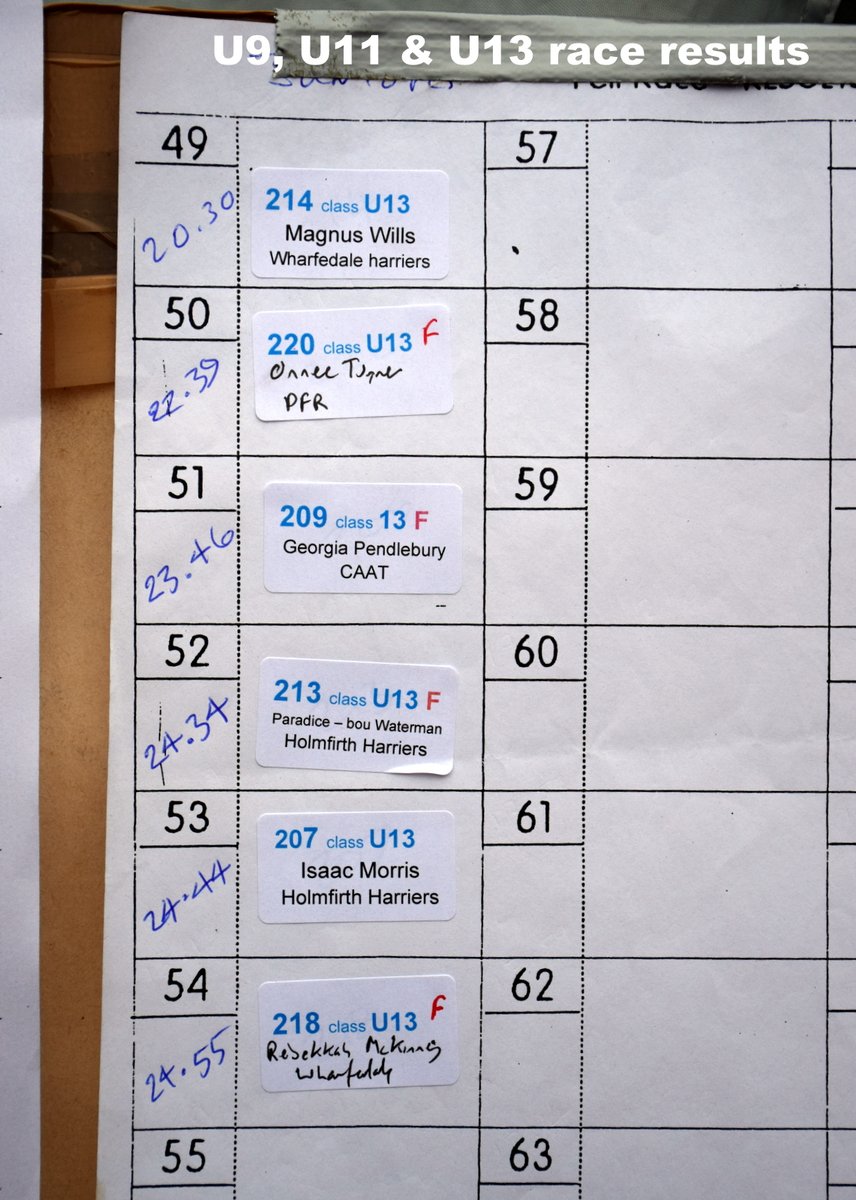 U9, U11 & U13 race results
49
20.30
214 class U13
Magnus Wills
Wharfedale harriers
50
22.39
220 class U13 F
DFR
51
23.46
209 class 13 F
Georgia Pendlebury
CAAT
52
24.34
213 class U13 F
Paradice – bou Waterman
Holmfirth Harriers
53
24.44
207 class U13
Isaac Morris
Holmfirth Harriers
54
24.55
218 class U13 F
Rebekkah McKinney
Wharfedale
55
57
58
59
60
61
62
63